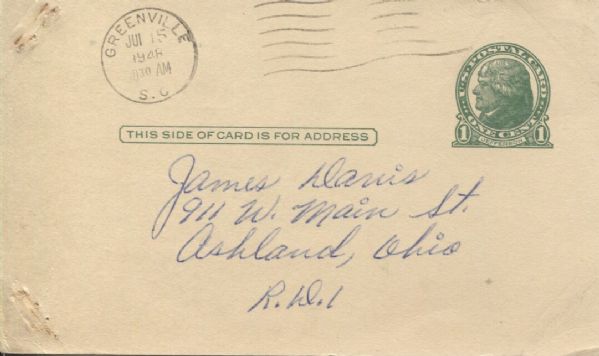 GREENVILLE
JUL 15
1948
830 AM
S. C
U.S. POSTAL CARD
1 ONE CENT 1
JEFFERSON
THIS SIDE OF CARD IS FOR ADDRESS
James Davis
911 W. Main St.
Ashland, Ohio
R.D.1